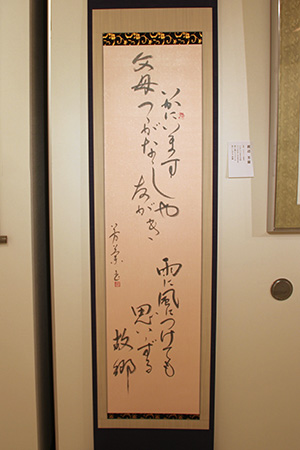 いかにいます
父母
つゝがなしや
友がき
雨に風につけても
思いいずる
故郷